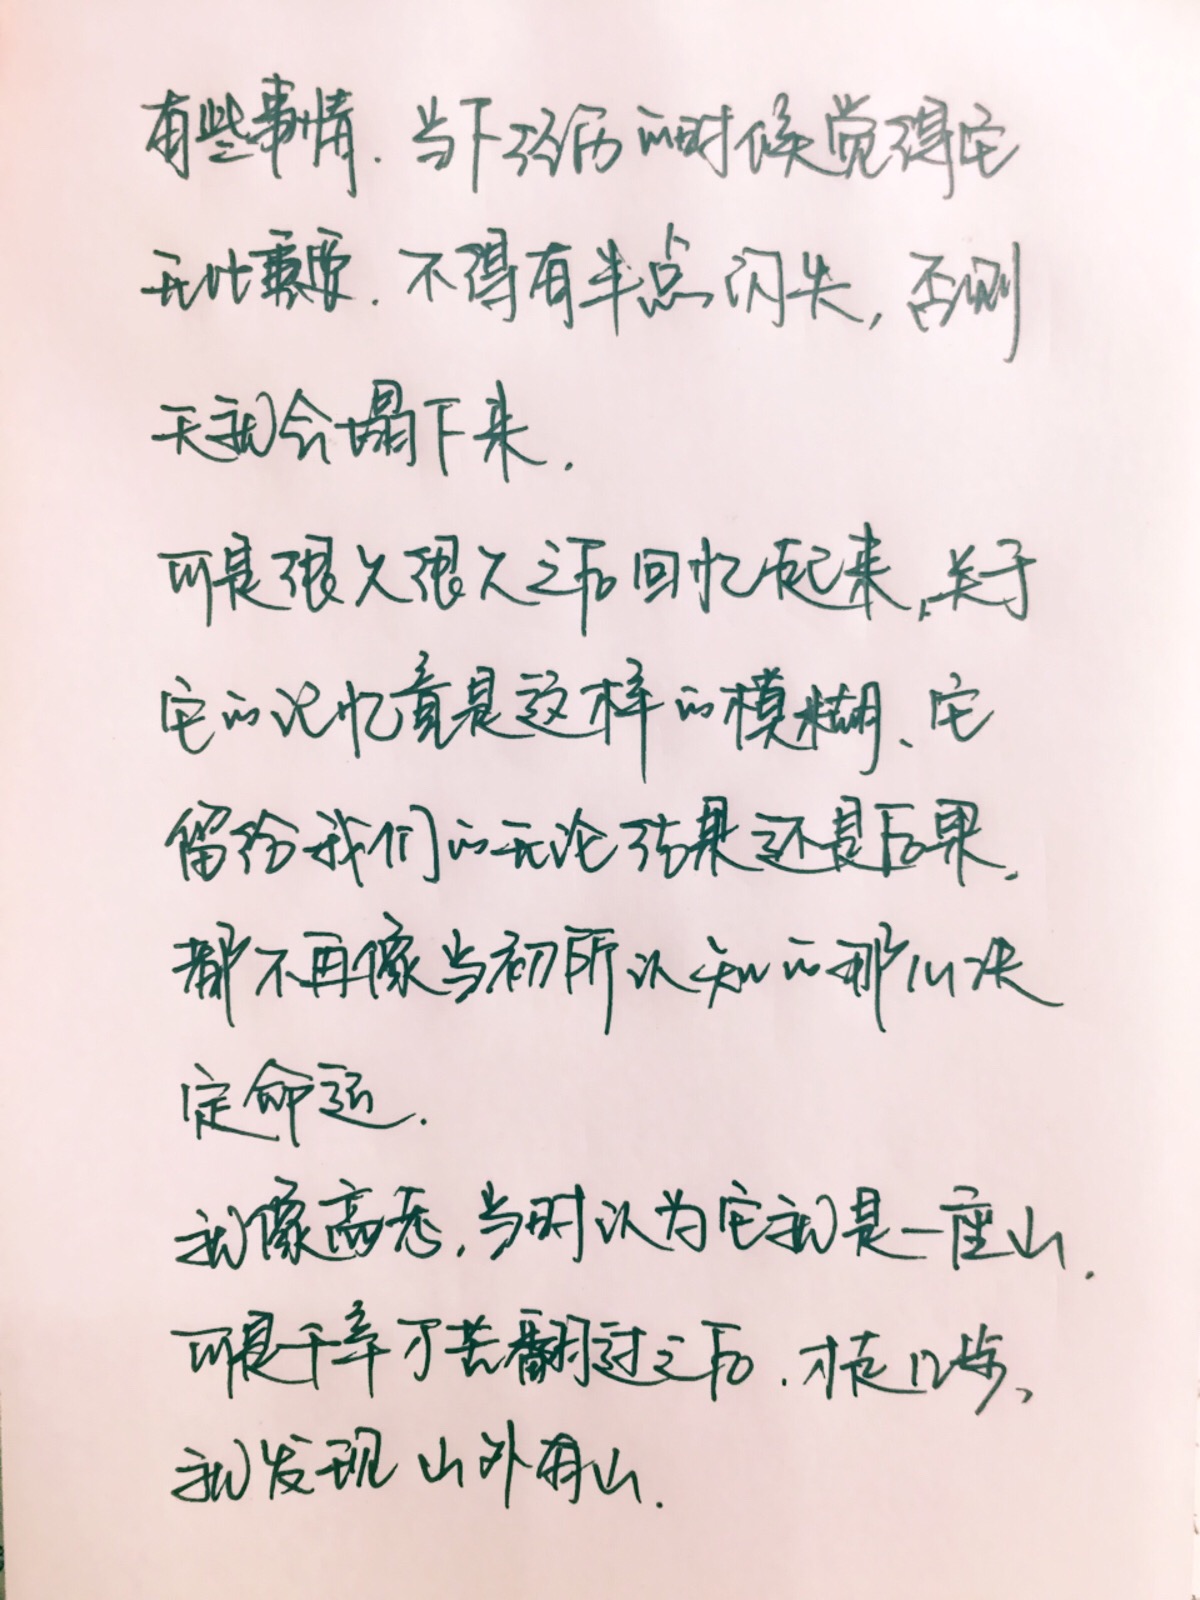 有些事情.当下经历的时候觉得它
无比重要.不得有半点闪失,否则
天就会塌下来.
可是很久很久之后回忆起来,关于
它的记忆竟是这样的模糊、它
留给我们的无论结果还是后果.
都不再像当初所认知的那般决
定命运.
就像高考,当时认为它就是一座山.
可是千辛万苦翻过之后.才走几步、
就发现山外有山.